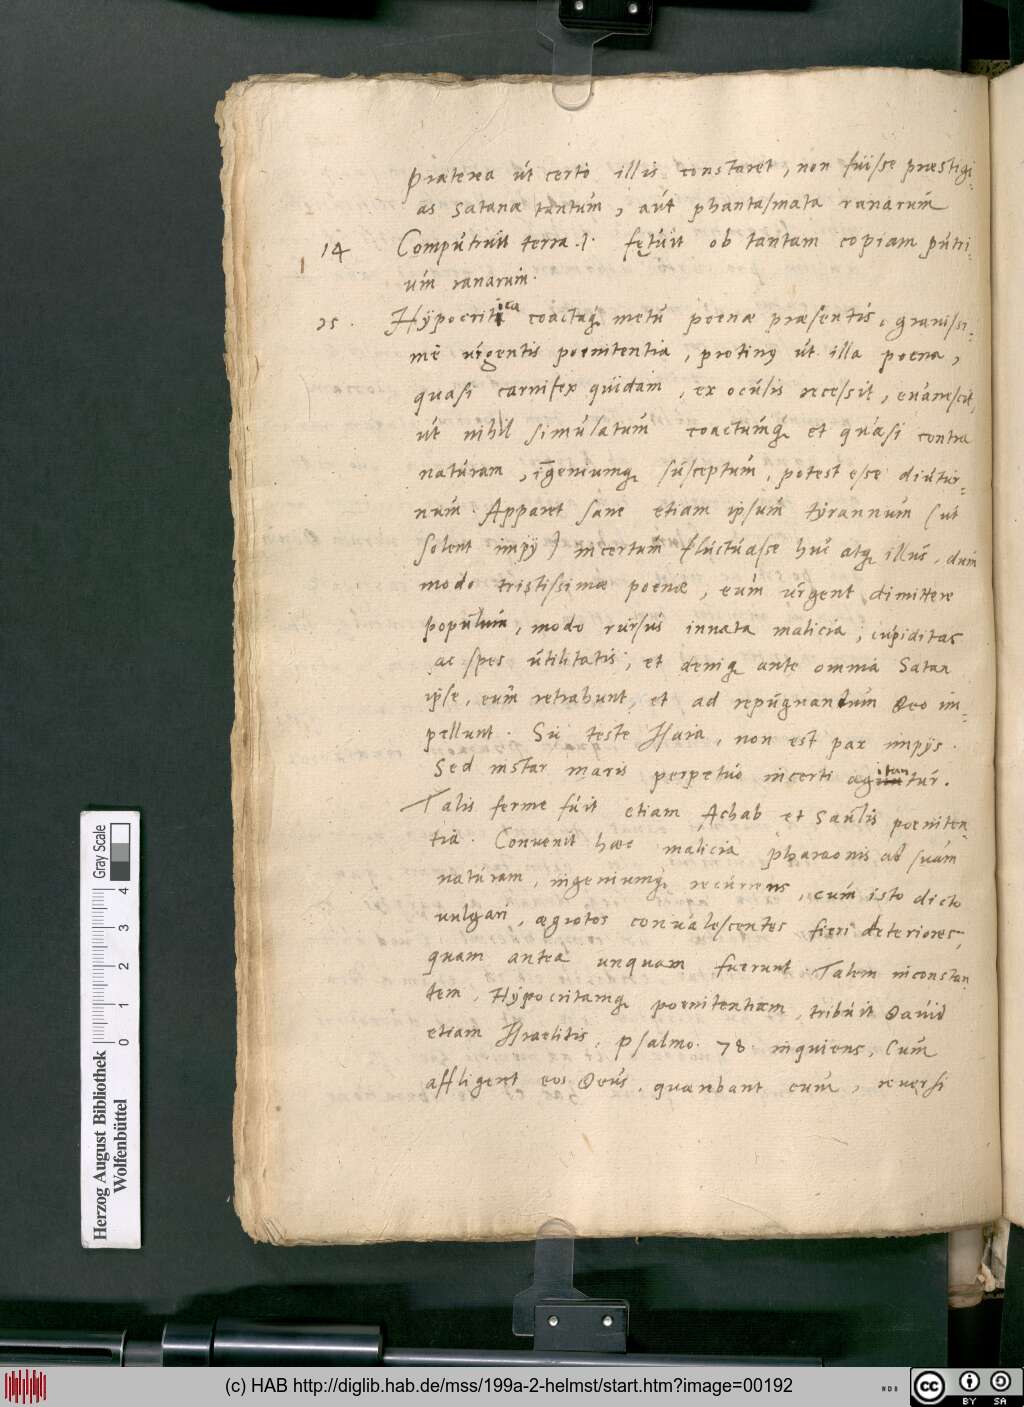 Præterea út certò illis constaret, non fúisse præstigi-
as Satanæ tantúm, aút phantasmata ranarúm
14 Compútruit terra .1. fętúit ob tantam copiam pútri-
úm ranarúm.
15. Hÿpocritica coactaq́ metú poenæ præsentis, gravissi-
mè úrgentis poenitentia, protinꝯ út illa poena,
quasi carnifex qúidam, ex ocúlis recessit, evanescit,
út nihil simúlatúm coactúmq́ et qúasi contra
natúram, īgeniumq́ súsceptúm, potest esse diútúr-
núm. Apparet sane etiam ipsúm tÿrannúm (út
solent impÿ) incertúm flúctúasse húc atq́ illúc, dúm
modo tristissimæ poenæ, eúm úrgent dimittere
popúlúm, modo rúrsús innata malicia, cúpiditas
ac spes útilitatis, et deniq́ ante omnia Satan
ipse, eúm retrahunt, et ad repúgnandúm Deo im-
pellunt. Sic teste Esaia, non est pax impÿs.
Sed instar maris perpetúo incerti agitantúr.
Talis ferme fúit etiam Achab et Saúlis poeniten-
tia. Convenit hæc malicia pharaonis ad súam
natúram, ingeniumq́ recúrrens, cúm isto dicto
vulgari, ægrotos convalescentes fieri deteriores,
quam antea unquam fuerunt. Talem inconstan-
tem, Hÿpocritamq́ poenitentiam, tribúit David
etiam Israelitis, psalmo. 78. inquiens, Cúm
affligeret eos Deús, quærebant eúm, reversi
Herzog August Bibliothek
Wolfenbüttel
0 1 2 3 4
Gray Scale
(c) HAB http://diglib.hab.de/mss/199a-2-helmst/start.htm?image=00192
cc BY SA